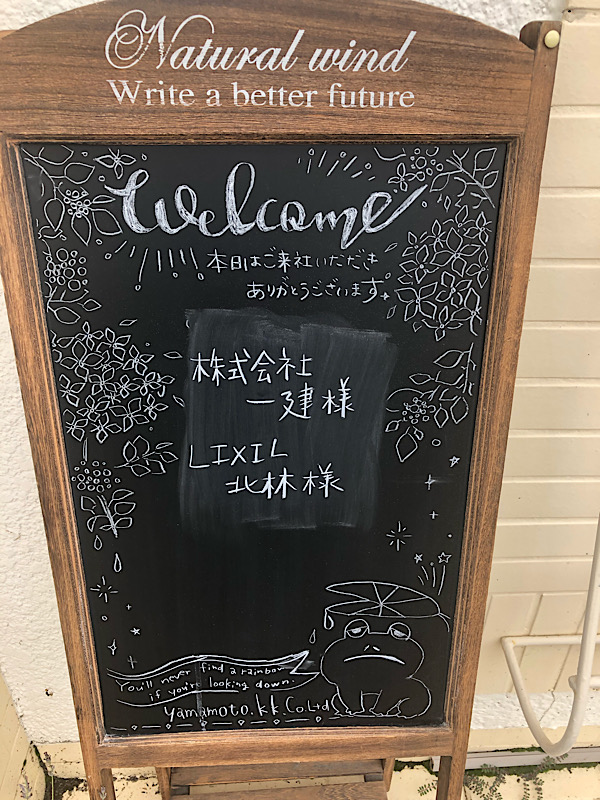 Natural wind
Write a better future
Welcome
本日はご来社いただき
ありがとうございます
株式会社
一建 様
LIXIL
北林 様
You'll never find a rainbow
if you're looking down.
yamamoto.k.k.Co.Ltd